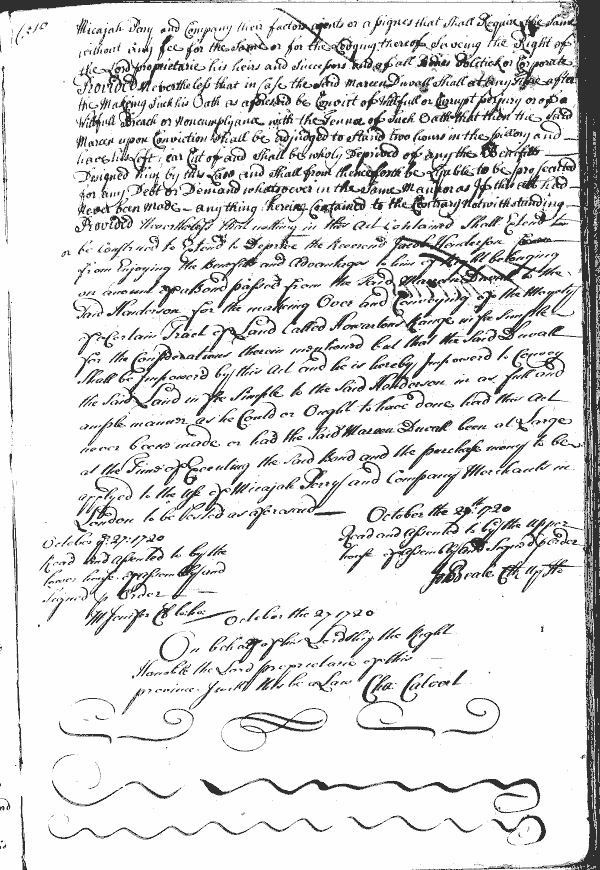 Micajah Pery and Company their factors agents or assignes that shall Require the Same
without any fee for the Same or for the Lodging thereof Saveing the Right of
the Lord proprietarie his heirs and Successors and of all Bodies politick or Corporate
Provided Nevertheless that in case the Said Mareen Duvall Shall at any time after
the Making Such his Oath as aforesaid be Convict of Willfull or Corrupt perjury or of a
Willfull Breach or Noncomplyance with the Tennor of Such Oath that then the Said
Mareen upon Conviction shall be adjudged to Stand two hours in the pillory and
have his Left ear Cut of and Shall be wholy Deprived of any the Benifitts
Designed him by this Law and Shall from thenceforth be Lyable to be prosecuted
for any Debt or Demand whatsoever in the Same Manner as If this Act had
Never been Made anything herein Contained to the Contrary Notwithstanding
Provided Nevertheless that nothing in this Act Contained Shall Extend
or be Construed to Extend to Deprive the Reverend Jacob Henderson
from Enjoying the Benefitts and Advantages to him belonging
on account of a Bond passed from the Said Mareen Duvall to the
Said Henderson for the making Over and Conveying of the
of a Certain Tract of Land Called Howertons Range in fee Simple
for the Considerations therein mentioned but that the Said Duvall
Shall be Impowered by this Act and he is hereby Impowered to Convey
the Said Land in fee Simple to the Said Henderson in as full and
ample manner as he Could or Ought to have done had this Act
never been made or had the Said Mareen Duvall been at Large
at the Time of Executing the Said Bond and the purchase money to be
applyed to the use of Micajah Perry and Company Merchants in
London to be as aforesaid
October the 27: 1720
Read and Assented to by the
lower house of assembly and
Signed p Order
M Jenifer Cl lo ho
October the 29th 1720
Read and assented to by the upper
house of assembly and Signed p Order
Beale Clk Up Ho
October the 27 1720
On behalf of his Lordship the Right
Honoble the Lord proprietarie of this
province I will this be a Law Cha Calvert